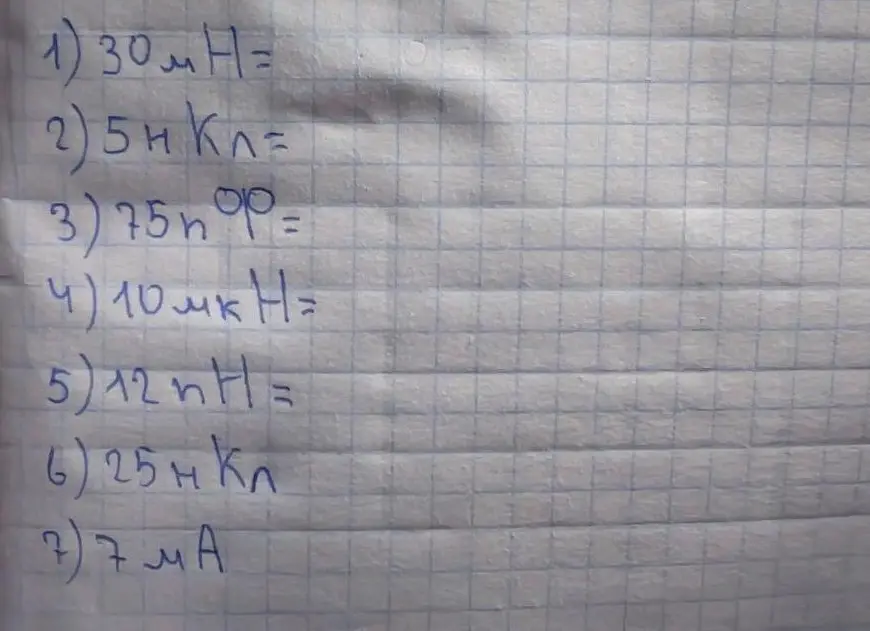 1) 30 мН=
2) 5 нКл=
3) 75 пФ=
4) 10 мкН=
5) 12 пН=
6) 25 нКл
7) 7 мА